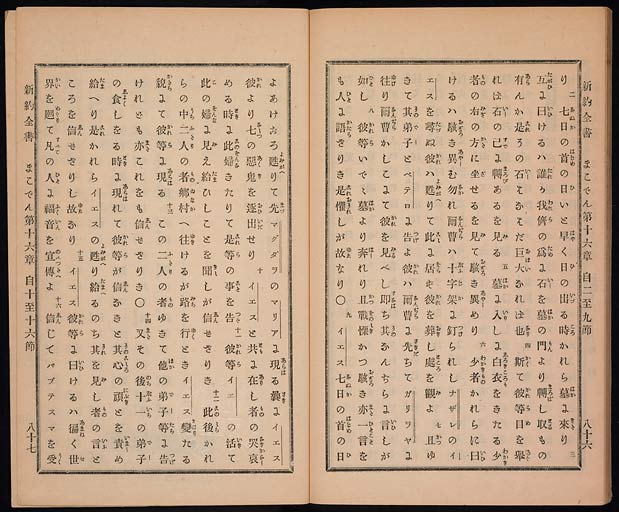 新約全書 まこでん第十六章 自二至九節 八十六
り 二 七日の首の日いと早く日の出る時かれら墓に來り 三
互に曰けるハ誰か我儕の爲に石を墓の門より轉し取もの
有んか是その石はなはだ巨大なれば也 四 斯て彼等目を舉
れば石の已に轉あるを見る 五 墓に入しに白衣をきたる少
者の右の方に坐せるを見て駭き異めり 六 少者かれらに曰
けるハ駭き異む勿れ爾曹ハ十字架に釘られしナザレのイ
エスを尋ぬ彼ハ甦りて此に居ず彼を葬し處を觀よ 七 且ゆ
きて其弟子とペテロに告よ彼ハ爾曹に先ちてガリラヤに
往り爾曹かしこにて彼を見べし即ち其なんぢらに言しが
如し 八 彼等いでて墓より奔れり且戰慄かつ駭き亦一言を
も人に語ざりき是懼しが故なり〇 九 イエス七日の首の日
よあけごろ甦りて先マグダラのマリアに現る曩にイエス
彼より七の惡鬼を逐出せり 十 イエスと共に在し者の哭哀
める時に此婦きたりて是等の事を告 十一 彼等イエスの活て
此の婦に見え給ひしことを聞しが信ぜざりき 十二 此後かれ
らの中二人の者鄕村へ往けるが路を行ときイエス變たる
貌にて彼等に現る 十三 この二人の者ゆきて他の弟子等に告
けれども亦これをも信ぜざりき〇 十四 又その後十一の弟子
の食しをる時に現れて彼等が信なきと其心の頑とを責め
給へり是かれらイエスの甦り給るのち其を見し者の言と
ころを信ぜざりし故なり 十五 イエス彼等に曰けるハ徧く世
界を廻て凡の人に福音を宣傳よ 十六 信じてバプテスマを受
新約全書 まこでん第十六章 自十至十六節 八十七